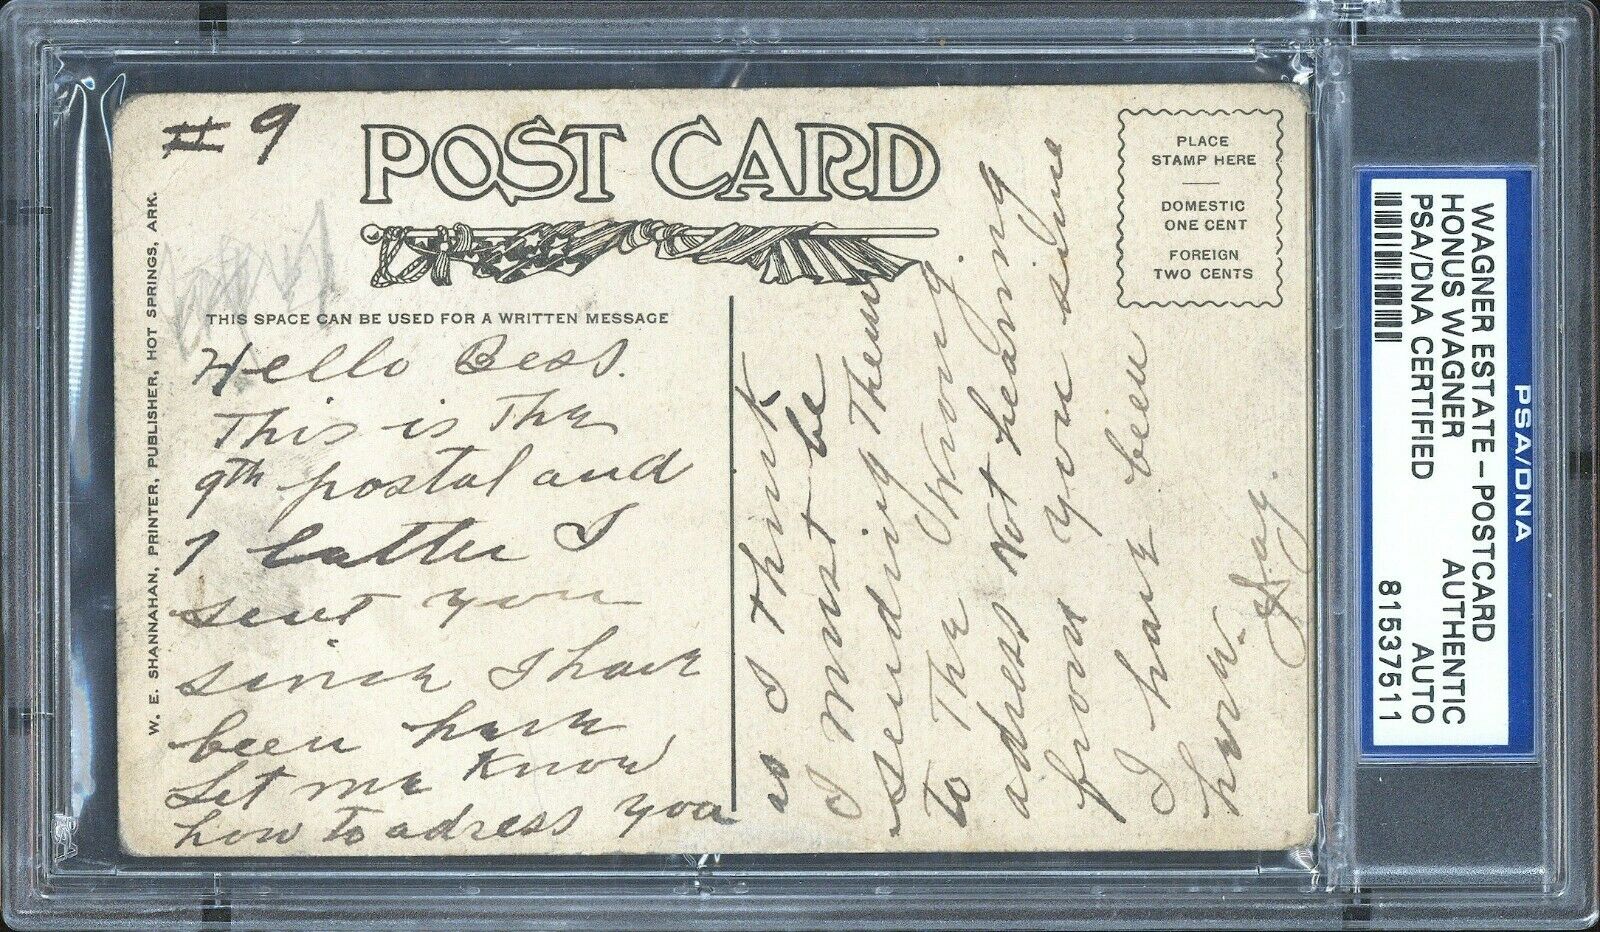 # 9
POST CARD
PLACE
STAMP HERE
DOMESTIC
ONE CENT
FOREIGN
TWO CENTS
THIS SPACE CAN BE USED FOR A WRITTEN MESSAGE
W. E. SHANNAHAN, PRINTER, PUBLISHER, HOT SPRINGS, ARK.
Hello Bess.
This is the
9th postal and
1 latter I
sent you
since I have
been here
Let me know
how to adress you
as I think
I must be
sending them
to the wrong
adress not hearing
from you since
I have been
here.
Jay.
PSA/DNA
WAGNER ESTATE - POSTCARD
HONUS WAGNER AUTHENTIC
PSA/DNA CERTIFIED AUTO
81537511